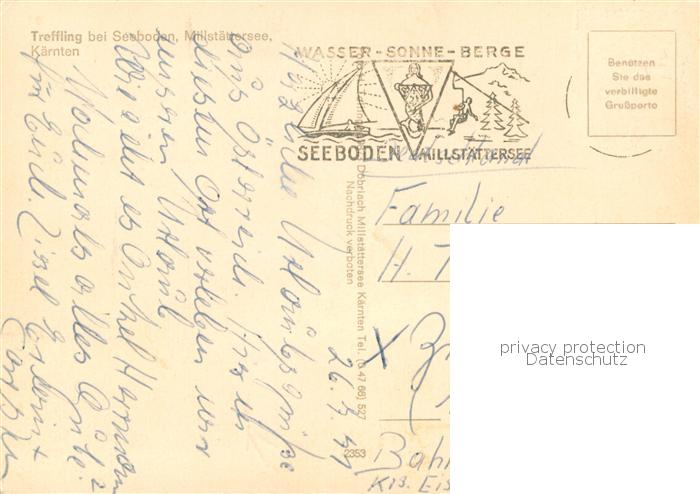 Treffling bei Seeboden, Millstättersee,
Kärnten
WASSER - SONNE - BERGE
SEEBODEN MILLSTÄTTERSEE
Benützen
Sie das
verbilligte
Grußporto
Döbriach Millstättersee Kärnten Tel. (0 47 66) 527
Nachdruck verboten
2353
26. 9.
Herzliche Urlaubsgrüße
aus Österreich. In
diesem Ort verleben wir
unseren Urlaub
Wie geht es Onkel Hermann?
Nochmals alles Gute
Familie
H. T
X
Bah
Krs. Eis
privacy protection
Datenschutz